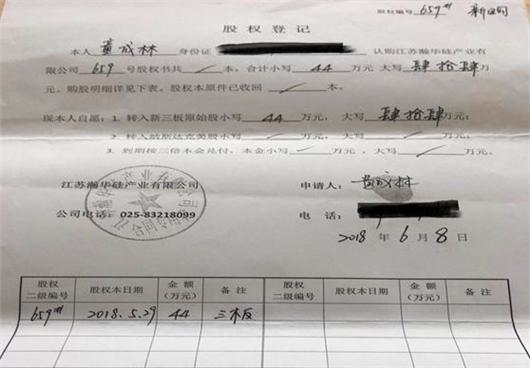 股权编号 659#
股权登记
本人 黄成林 身份证 认购江苏瀚华硅产业有
限公司 659 号股权书共 / 本，合计小写 44 万元 大写 肆拾肆 万
元。购股明细详见下表。股权本原件已收回 / 本。
现本人自愿：1. 转入新三板原始股小写 44 万元，大写 肆拾肆 万元；
2. 转入纳斯达克美股小写 / 万元，大写 / 万元；
3. 到期按三倍本金兑付，本金小写 / 万元，大写 / 万元。
江苏瀚华硅产业有限公司 申请人：黄成林
公司电话：025-83218099 电 话：
2018 年 6 月 8 日
股权二级编号 股权本日期 金额（万元） 备注 股权二级编号 股权本日期 金额（万元） 备注
659# 2018.5.29 44 三板